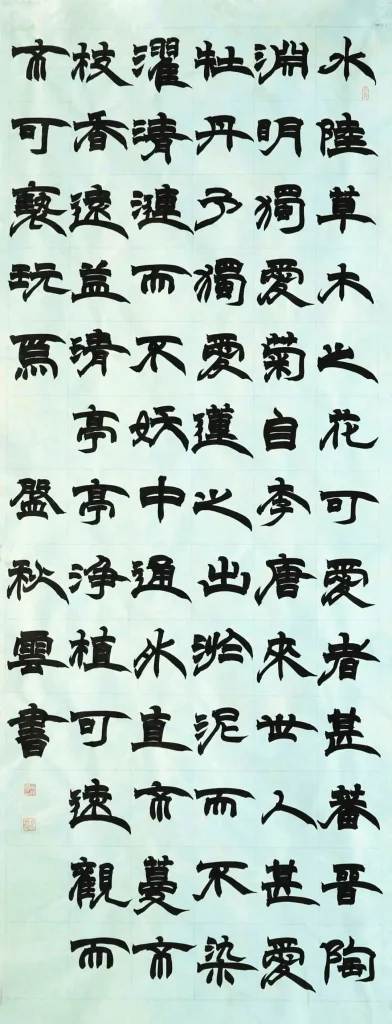 水陸草木之花可愛者甚蕃晉陶
淵明獨愛菊自李唐來世人甚愛
牡丹予獨愛蓮之出淤泥而不染
濯清漣而不妖中通外直不蔓不
枝香遠益清亭亭淨植可遠觀而
不可褻玩焉 盤秋雲書